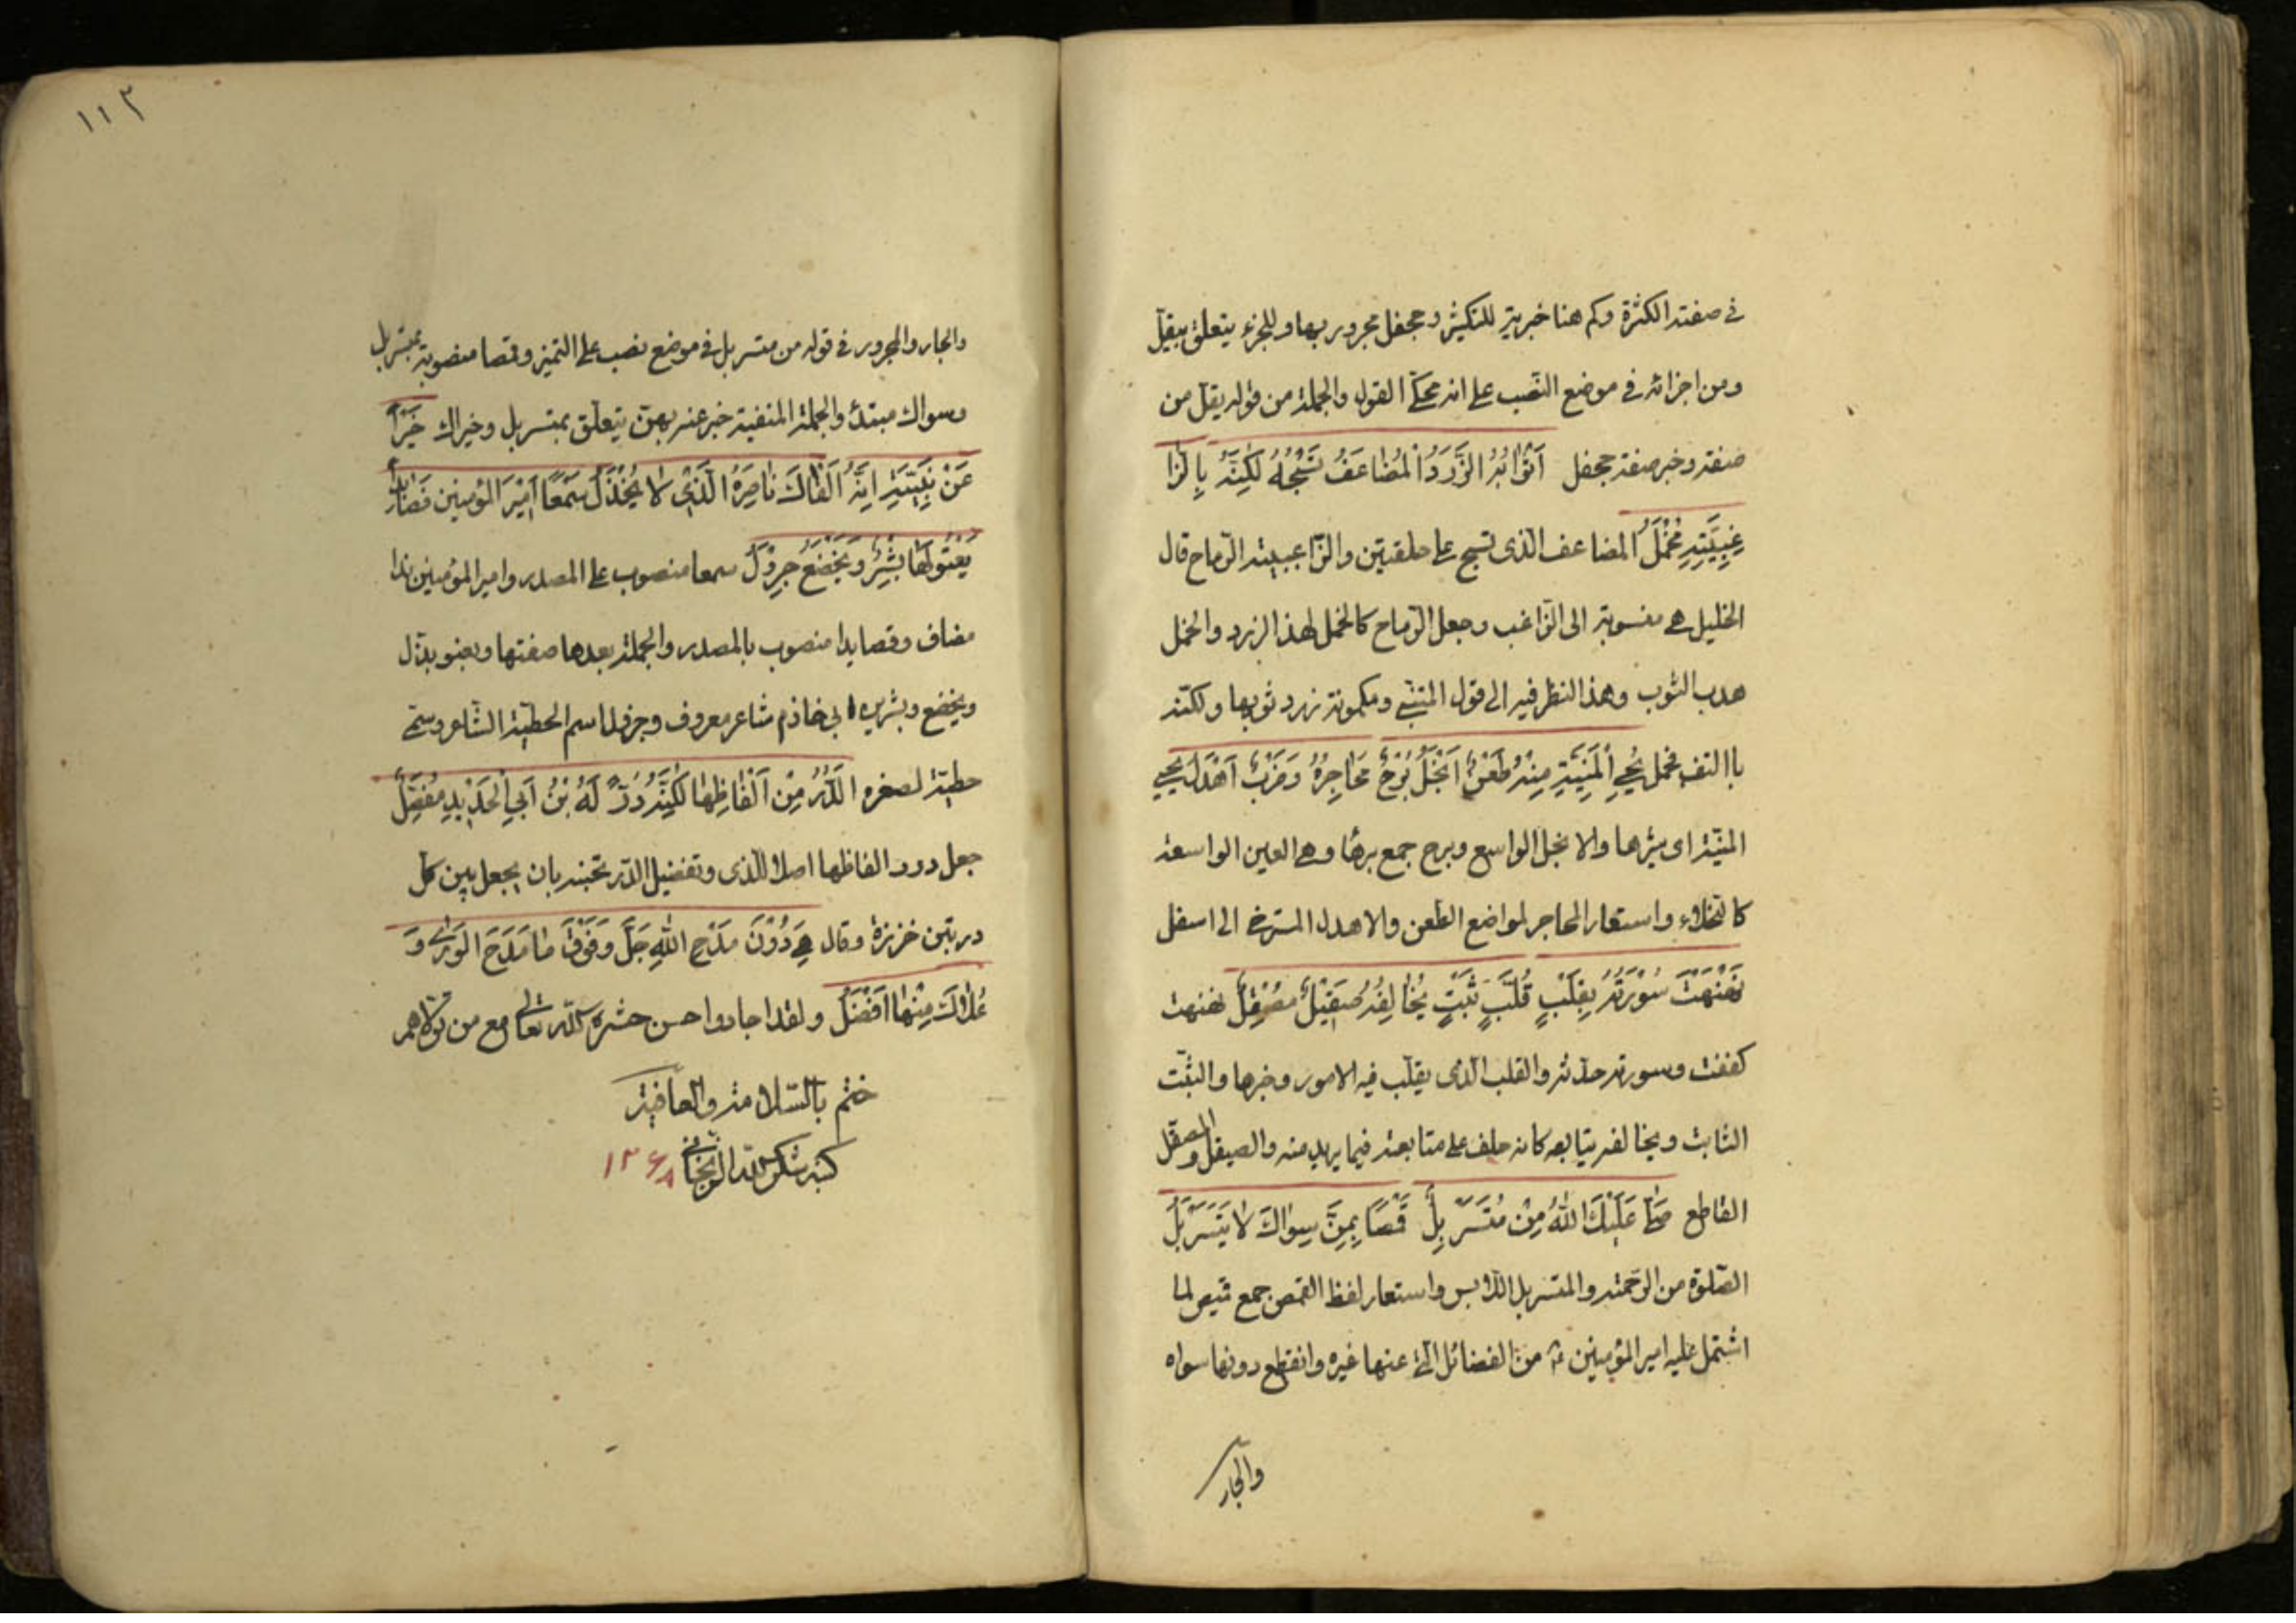 في صفته الكثرة وكم هنا خبرية للتكثير وجحفل مجرور بها وللجزء يتعلق بيقل
ومن اجزائه في موضع النصب على انه محكي القول والجملة من قوله يقل من
صفته وخبر صفته جحفل اَثْوَابُهُ الزَّرَدُ الْمُضَاعَفُ نَسْجُهُ لَكِنَّهُ بِالزَّا
غِبِيَّتِهِ مُخْمَلُ المضاعف الذى نسج على حلقتين والزاغبية الرماح قال
الخليل هي منسوبة الى الزاغب وجعل الرماح كالخمل لهذا الزرد والخمل
هدب الثوب وهذا النظر فيه الى قول المتنبي وملمومة زرد ثوبها ولكنه
باالقنا مخمل يُحْيِي الْمَنِيَّةِ مِنْهُ طَعْنٌ اَنْجَلُ بُرْجٌ مَحَاجِرُهُ وَضَرْبٌ اَهْدَلُ يحيي
المنية اى يثيرها والانجل الواسع وبرج جمع برجا وهي العين الواسعة
كالنجلاء واستعار المحاجر لمواضع الطعن والاهدل المسترخي الى اسفل
نَهْنَهْتَ سَوْرَتَهُ بِقَلْبٍ قُلَّبٍ ثَبْتٍ يُحَالِفُهُ صَقِيلٌ مِصْقَلٌ نهنهت
كففت وسورته حدته والقلب الذى يقلب فيه الامور وخبرها والثبت
الثابت ويحالفه يتابعه كانه حلف على متابعته فيما يريد منه والصيقل والمصقل
القاطع صَلَّى عَلَيْكَ اللهُ مِنْ مُتَسَرْبِلٍ قُمُصًا بِهِنَّ سِوَاكَ لَا يَتَسَرْبَلُ
الصلوة من الرحمة والمتسربل اللابس واستعار لفظ القمص جمع قميص لما
اشتمل عليه امير المؤمنين ع من الفضائل التي عنها غيره وانقطع دونها سواه
والجار
١١٣
والجار والمجرور في قوله من متسربل في موضع نصب على التميز وقمصا منصوبة بمتسربل
وسواك مبتدئ والجملة المنفية خبر عنه بهن يتعلق بمتسربل وخبراك خَيْرًا
عَنْ نَبِيِّتِهِ اِنَّهُ اَلْفَاكَ نَاصِرَهُ الَّذِي لَا يُخْذَلُ سَمْعًا اَمِيرَ الْمُؤْمِنِينَ قَصَائِدًا
يَعْنُو لَهَا بِشْرٌ وَيَخْضَعُ جِرْوَلُ سمعا منصوب على المصدر وامير المؤمنين ندا
مضاف وقصايدا منصوب بالمصدر والجملة بعدها صفتها ويعنو يذل
ويخضع وبشر بن ابي خاذم شاعر معروف وجرول اسم الحطيئة الشاعر وسمي
حطيئة لصغره اَلدُّرُّ مِنْ اَلْفَاظِهَا لَكِنَّهُ دُرٌّ لَهُ بْنُ اَبِي الْحَدِيدِ مُفَصِّلُ
جعل درر الفاظها اصلا للذى وتفضيل الدر تحبنه بان يجعل بين كل
دريتين خرزة وقال هِيَ دُوْنَ مَدْحِ اللهِ جَلَّ وَفَوْقَ مَا مَدَحَ الْوَرَى وَ
عُلَاكَ مِنْهَا اَفْضَلُ ولقد اجاد واحسن حشره الله تعالى مع من تولاهم
ختم بالسلامة والعافية
كتبه شكرالله الريحاني ١٢٦٨